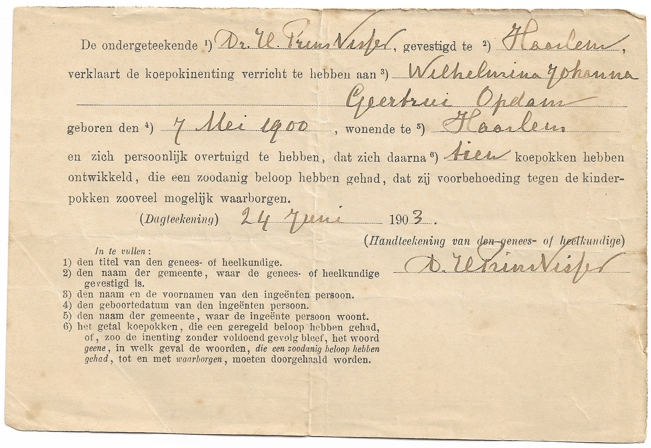 De ondergeteekende 1) Dr. H. Prins Visser, gevestigd te 2) Haarlem,
verklaart de koepokinenting verricht te hebben aan 3) Wilhelmina Johanna
Geertrui Opdam
geboren den 4) 7 Mei 1900, wonende te 5) Haarlem
en zich persoonlijk overtuigd te hebben, dat zich daarna 6) tien koepokken hebben
ontwikkeld, die een zoodanig beloop hebben gehad, dat zij voorbehoeding tegen de kinder-
pokken zooveel mogelijk waarborgen.
(Dagteekening) 24 Juni 1903.
(Handteekening van den genees- of heelkundige)
D. H Prins Visser
In te vullen:
1) den titel van den genees- of heelkundige.
2) den naam der gemeente, waar de genees- of heelkundige
gevestigd is.
3) den naam en de voornamen van den ingeënten persoon.
4) den geboortedatum van den ingeënten persoon.
5) den naam der gemeente, waar de ingeënte persoon woont.
6) het getal koepokken, die een geregeld beloop hebben gehad,
of, zoo de inenting zonder voldoend gevolg bleef, het woord
geene, in welk geval de woorden, die een zoodanig beloop hebben
gehad, tot en met waarborgen, moeten doorgehaald worden.